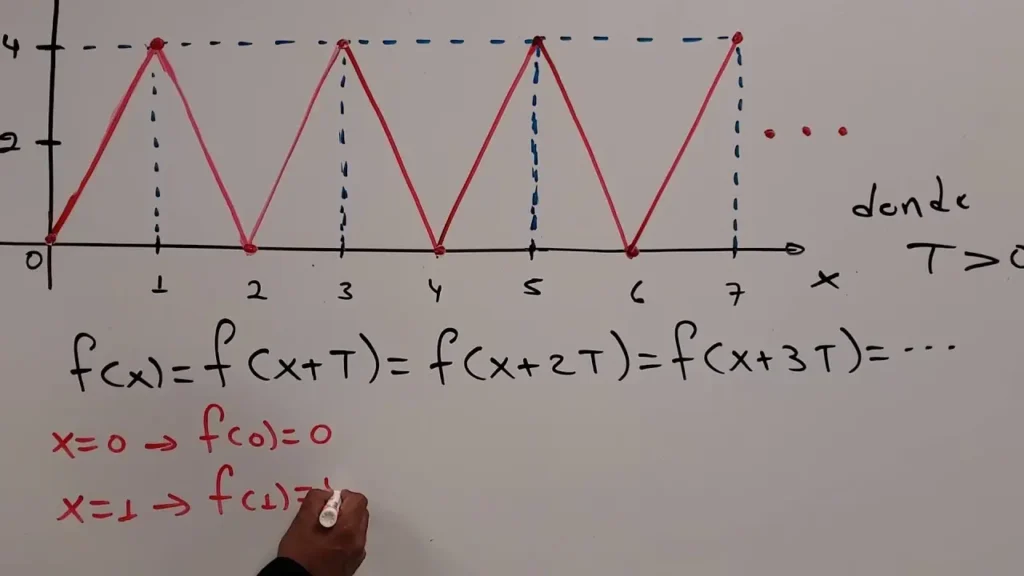 4
2
0
1 2 3 4 5 6 7 x
donde
T > 0
f(x) = f(x+T) = f(x+2T) = f(x+3T) = ...
x=0 → f(0)=0
x=1 → f(1)=